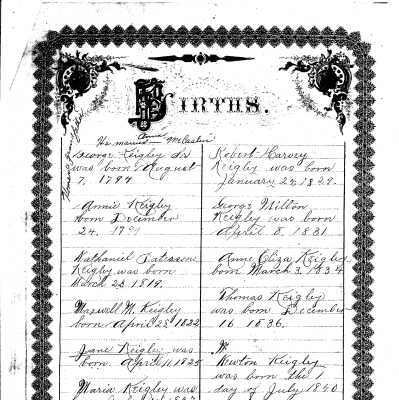 BIRTHS.
He married Anne McCaslin
George Keigley Sr
was born August
7, 1794
Annie Keigley
born December
24, 1791
Nathaniel Patterson
Keigley was born
March 23 1819.
Maxwell M. Keigley
born April 28 1822
Jane Keigley was
born April 11 1825
Maria Keigley was
Robert Harvey
Keigley was born
January 24, 1829.
George Wilton
Keigley was born
April 8, 1831
Anne Eliza Keigley
born March 3, 1834
Thomas Keigley
was born December
16, 1836.
Newton Keigley
was born the 1
day of July 1840